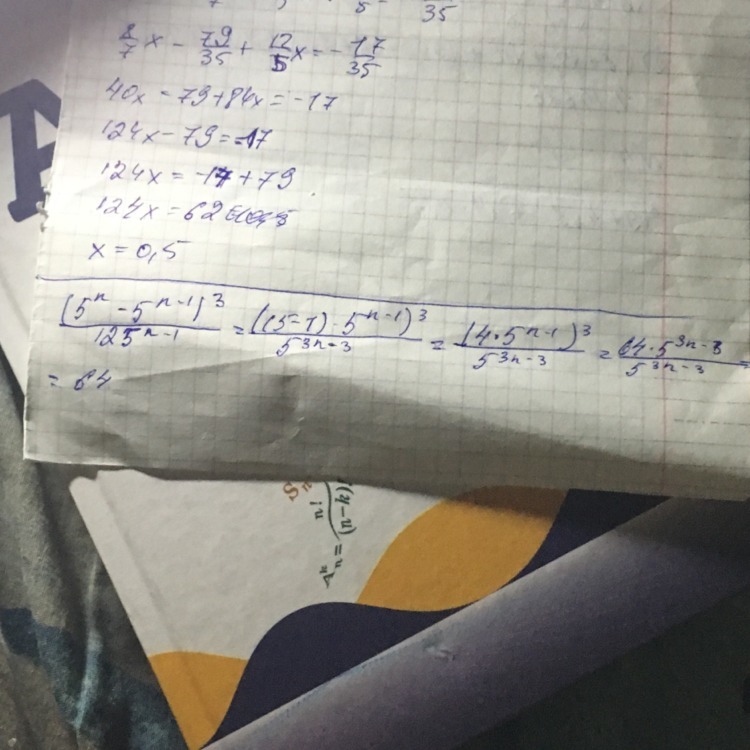 5 35
8/7 x - 79/35 + 12/5 x = - 17/35
40x - 79 + 84x = -17
124x - 79 = -17
124x = -17 + 79
124x = 62
x = 0,5
(5^n - 5^(n-1))^3 / 125^(n-1) = ((5-1) · 5^(n-1))^3 / 5^(3n-3) = (4 · 5^(n-1))^3 / 5^(3n-3) = 64 · 5^(3n-3) / 5^(3n-3) =
= 64
S_n
A_n^k = n! / (n-k)!